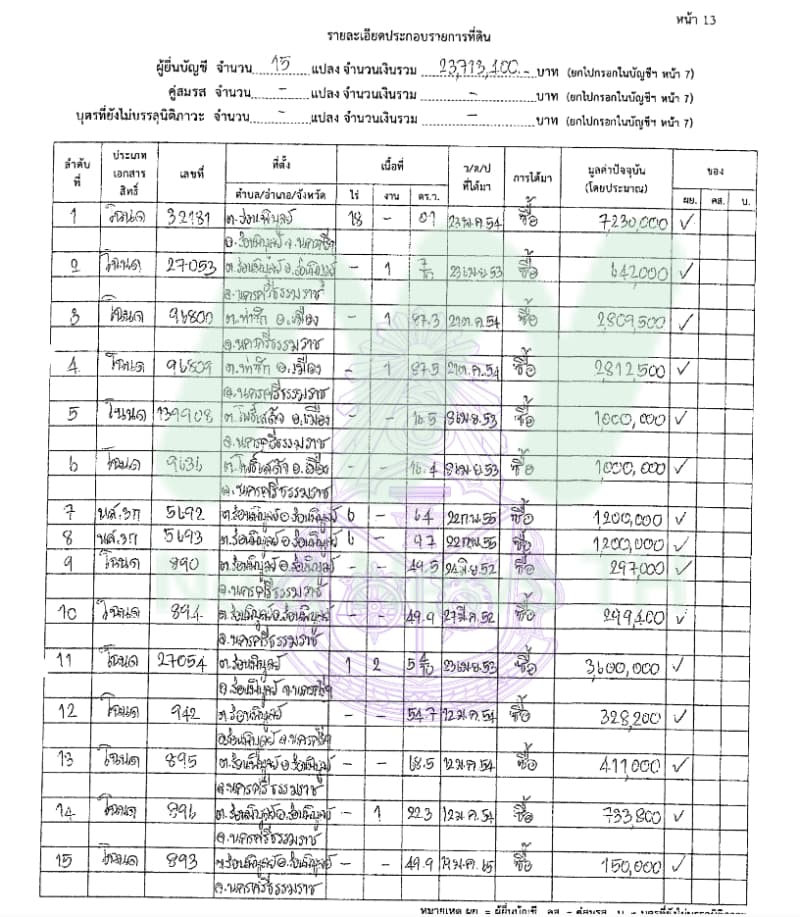 หน้า 13
รายละเอียดประกอบรายการที่ดิน
ผู้ยื่นบัญชี จำนวน 15 แปลง จำนวนเงินรวม 23,713,400.- บาท (ยกไปกรอกในบัญชีฯ หน้า 7)
คู่สมรส จำนวน - แปลง จำนวนเงินรวม - บาท (ยกไปกรอกในบัญชีฯ หน้า 7)
บุตรที่ยังไม่บรรลุนิติภาวะ จำนวน - แปลง จำนวนเงินรวม - บาท (ยกไปกรอกในบัญชีฯ หน้า 7)
ลำดับที่ ประเภทเอกสารสิทธิ์ เลขที่ ที่ตั้ง เนื้อที่ ว/ด/ป ที่ได้มา การได้มา มูลค่าปัจจุบัน (โดยประมาณ) ของ
ตำบล/อำเภอ/จังหวัด ไร่ งาน ตร.ว. ผย. คส. บ.
1 โฉนด 32181 ต.ร่อนพิบูลย์ 18 - 01 23 ม.ค 54 ซื้อ 7,230,000 ✓
อ.ร่อนพิบูลย์ จ.นครศรีฯ
2 โฉนด 27053 ต.ร่อนพิบูลย์ อ.ร่อนพิบูลย์ - 1 23 เม.ย 53 ซื้อ 642,000 ✓
จ.นครศรีธรรมราช
3 โฉนด 96800 ต.ท่าซัก อ.เมือง - 1 87.3 21 ต.ค 54 ซื้อ 2,809,500 ✓
จ.นครศรีธรรมราช
4 โฉนด 96801 ต.ท่าซัก อ.เมือง - 1 87.5 21 ต.ค 54 ซื้อ 2,812,500 ✓
จ.นครศรีธรรมราช
5 โฉนด 139908 ต.โพธิ์เสด็จ อ.เมือง - - 16.5 8 เม.ย 53 ซื้อ 1,000,000 ✓
จ.นครศรีธรรมราช
6 โฉนด 9636 ต.โพธิ์เสด็จ อ.เมือง - - 16.4 8 เม.ย 53 ซื้อ 1,000,000 ✓
จ.นครศรีธรรมราช
7 นส.3ก 5692 ต.ร่อนพิบูลย์ อ.ร่อนพิบูลย์ 6 - 64 22 ก.พ 55 ซื้อ 1,200,000 ✓
8 นส.3ก 5693 ต.ร่อนพิบูลย์ อ.ร่อนพิบูลย์ 6 - 97 22 ก.พ 55 ซื้อ 1,200,000 ✓
9 โฉนด 890 ต.ร่อนพิบูลย์ อ.ร่อนพิบูลย์ - - 49.5 24 มิ.ย 52 ซื้อ 297,000 ✓
จ.นครศรีธรรมราช
10 โฉนด 894 ต.ร่อนพิบูลย์ อ.ร่อนพิบูลย์ - - 49.9 27 มี.ค 52 ซื้อ 299,400 ✓
จ.นครศรีธรรมราช
11 โฉนด 27054 ต.ร่อนพิบูลย์ 1 2 23 เม.ย 53 ซื้อ 3,600,000 ✓
อ.ร่อนพิบูลย์ จ.นครศรีฯ
12 โฉนด 942 ต.ร่อนพิบูลย์ - - 54.7 12 ม.ค 54 ซื้อ 328,200 ✓
อ.ร่อนพิบูลย์ จ.นครศรีฯ
13 โฉนด 895 ต.ร่อนพิบูลย์ อ.ร่อนพิบูลย์ - - 68.5 12 ม.ค 54 ซื้อ 411,000 ✓
จ.นครศรีธรรมราช
14 โฉนด 896 ต.ร่อนพิบูลย์ อ.ร่อนพิบูลย์ - 1 22.3 12 ม.ค 54 ซื้อ 733,800 ✓
จ.นครศรีธรรมราช
15 โฉนด 893 ต.ร่อนพิบูลย์ อ.ร่อนพิบูลย์ - - 49.9 ซื้อ 150,000 ✓
จ.นครศรีธรรมราช